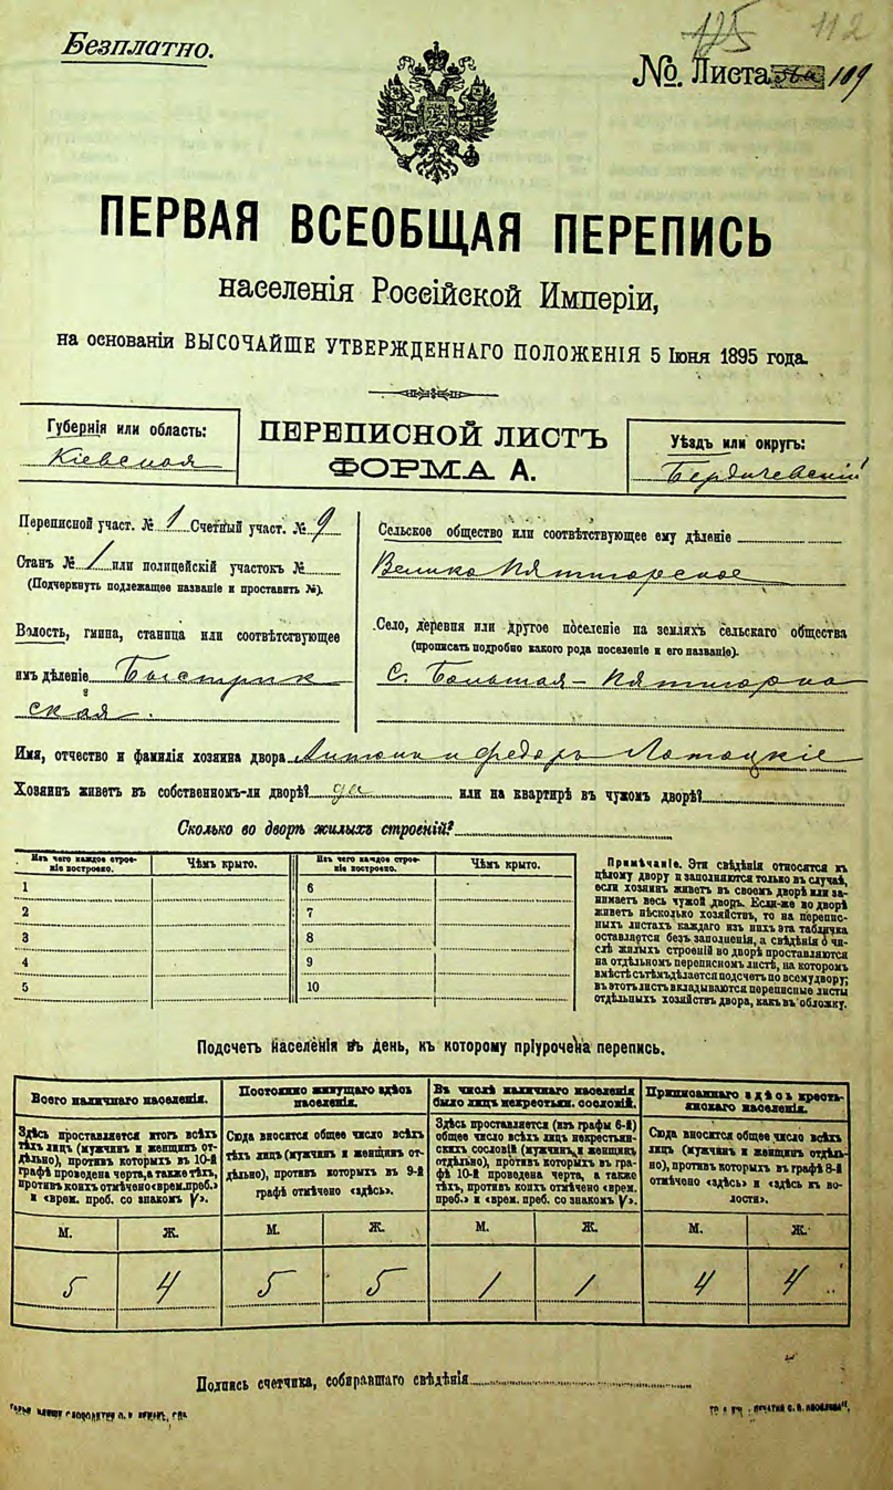 Безплатно.
125 112
№ Листа 109
ПЕРВАЯ ВСЕОБЩАЯ ПЕРЕПИСЬ
населенія Россійской Имперіи,
на основаніи ВЫСОЧАЙШЕ УТВЕРЖДЕННАГО ПОЛОЖЕНІЯ 5 Іюня 1895 года.
Губернія или область:
Кіевская
ПЕРЕПИСНОЙ ЛИСТЪ
ФОРМА А.
Уѣздъ или округъ:
Бердичевскій
Переписной участ. № 1 Счетный участ. № 9
Станъ № 1 или полицейскій участокъ №
(Подчеркнуть подлежащее названіе и проставить №).
Волость, гмина, станица или соотвѣтствующее
имъ дѣленіе Быстрик
ская.
Сельское общество или соотвѣтствующее ему дѣленіе
Велико Пятигорское
Село, деревня или другое поселеніе на земляхъ сельскаго общества
(прописать подробно какого рода поселеніе и его названіе).
С. Большая - Пятигорка
Имя, отчество и фамилія хозяина двора Антонъ и Федоръ Лотоцкіе
Хозяинъ живетъ въ собственномъ-ли дворѣ? да или на квартирѣ въ чужомъ дворѣ?
Сколько во дворѣ жилыхъ строеній?
Изъ чего каждое строе-
ніе построено.
Чѣмъ крыто.
Изъ чего каждое строе-
ніе построено.
Чѣмъ крыто.
1 6
2 7
3 8
4 9
5 10
Примѣчаніе. Эти свѣдѣнія относятся къ
цѣлому двору и заполняются только въ случаѣ,
если хозяинъ живетъ въ своемъ дворѣ или за-
нимаетъ весь чужой дворъ. Если-же во дворѣ
живетъ нѣсколько хозяйствъ, то на перепис-
ныхъ листахъ каждаго изъ нихъ эта табличка
оставляется безъ заполненія, а свѣдѣнія о чи-
слѣ жилыхъ строеній во дворѣ проставляются
на отдѣльномъ переписномъ листѣ, на которомъ
вмѣстѣ съ тѣмъ дѣлается подсчетъ по всему двору;
въ этотъ листъ вкладываются переписные листы
отдѣльныхъ хозяйствъ двора, какъ въ обложку.
Подсчетъ населенія въ день, къ которому пріурочена перепись.
Всего наличнаго населенія.
Здѣсь проставляется итогъ всѣхъ
тѣхъ лицъ (мужчинъ и женщинъ от-
дѣльно), противъ которыхъ въ 10-й
графѣ проведена черта, а также тѣхъ,
противъ коихъ отмѣчено «врем. преб.»
и «врем. преб. со знакомъ V».
Постоянно живущаго здѣсь
населенія.
Сюда вносится общее число всѣхъ
тѣхъ лицъ (мужчинъ и женщинъ от-
дѣльно), противъ которыхъ въ 9-й
графѣ отмѣчено «здѣсь».
Въ числѣ наличнаго населенія
было лицъ некрестьян. сословій.
Здѣсь проставляется (изъ графы 6-й)
общее число всѣхъ лицъ некрестьян-
скихъ сословій (мужчинъ и женщинъ
отдѣльно), противъ которыхъ въ гра-
фѣ 10-й проведена черта, а также
тѣхъ, противъ коихъ отмѣчено «врем.
преб.» и «врем. преб. со знакомъ V».
Приписаннаго здѣсь кресть-
янскаго населенія.
Сюда вносится общее число всѣхъ
лицъ (мужчинъ и женщинъ отдѣль-
но), противъ которыхъ въ графѣ 8-й
отмѣчено «здѣсь» и «здѣсь къ во-
лости».
М. Ж. М. Ж. М. Ж. М. Ж.
5 4 5 5 1 1 4 4
Подпись счетчика, собиравшаго свѣдѣнія